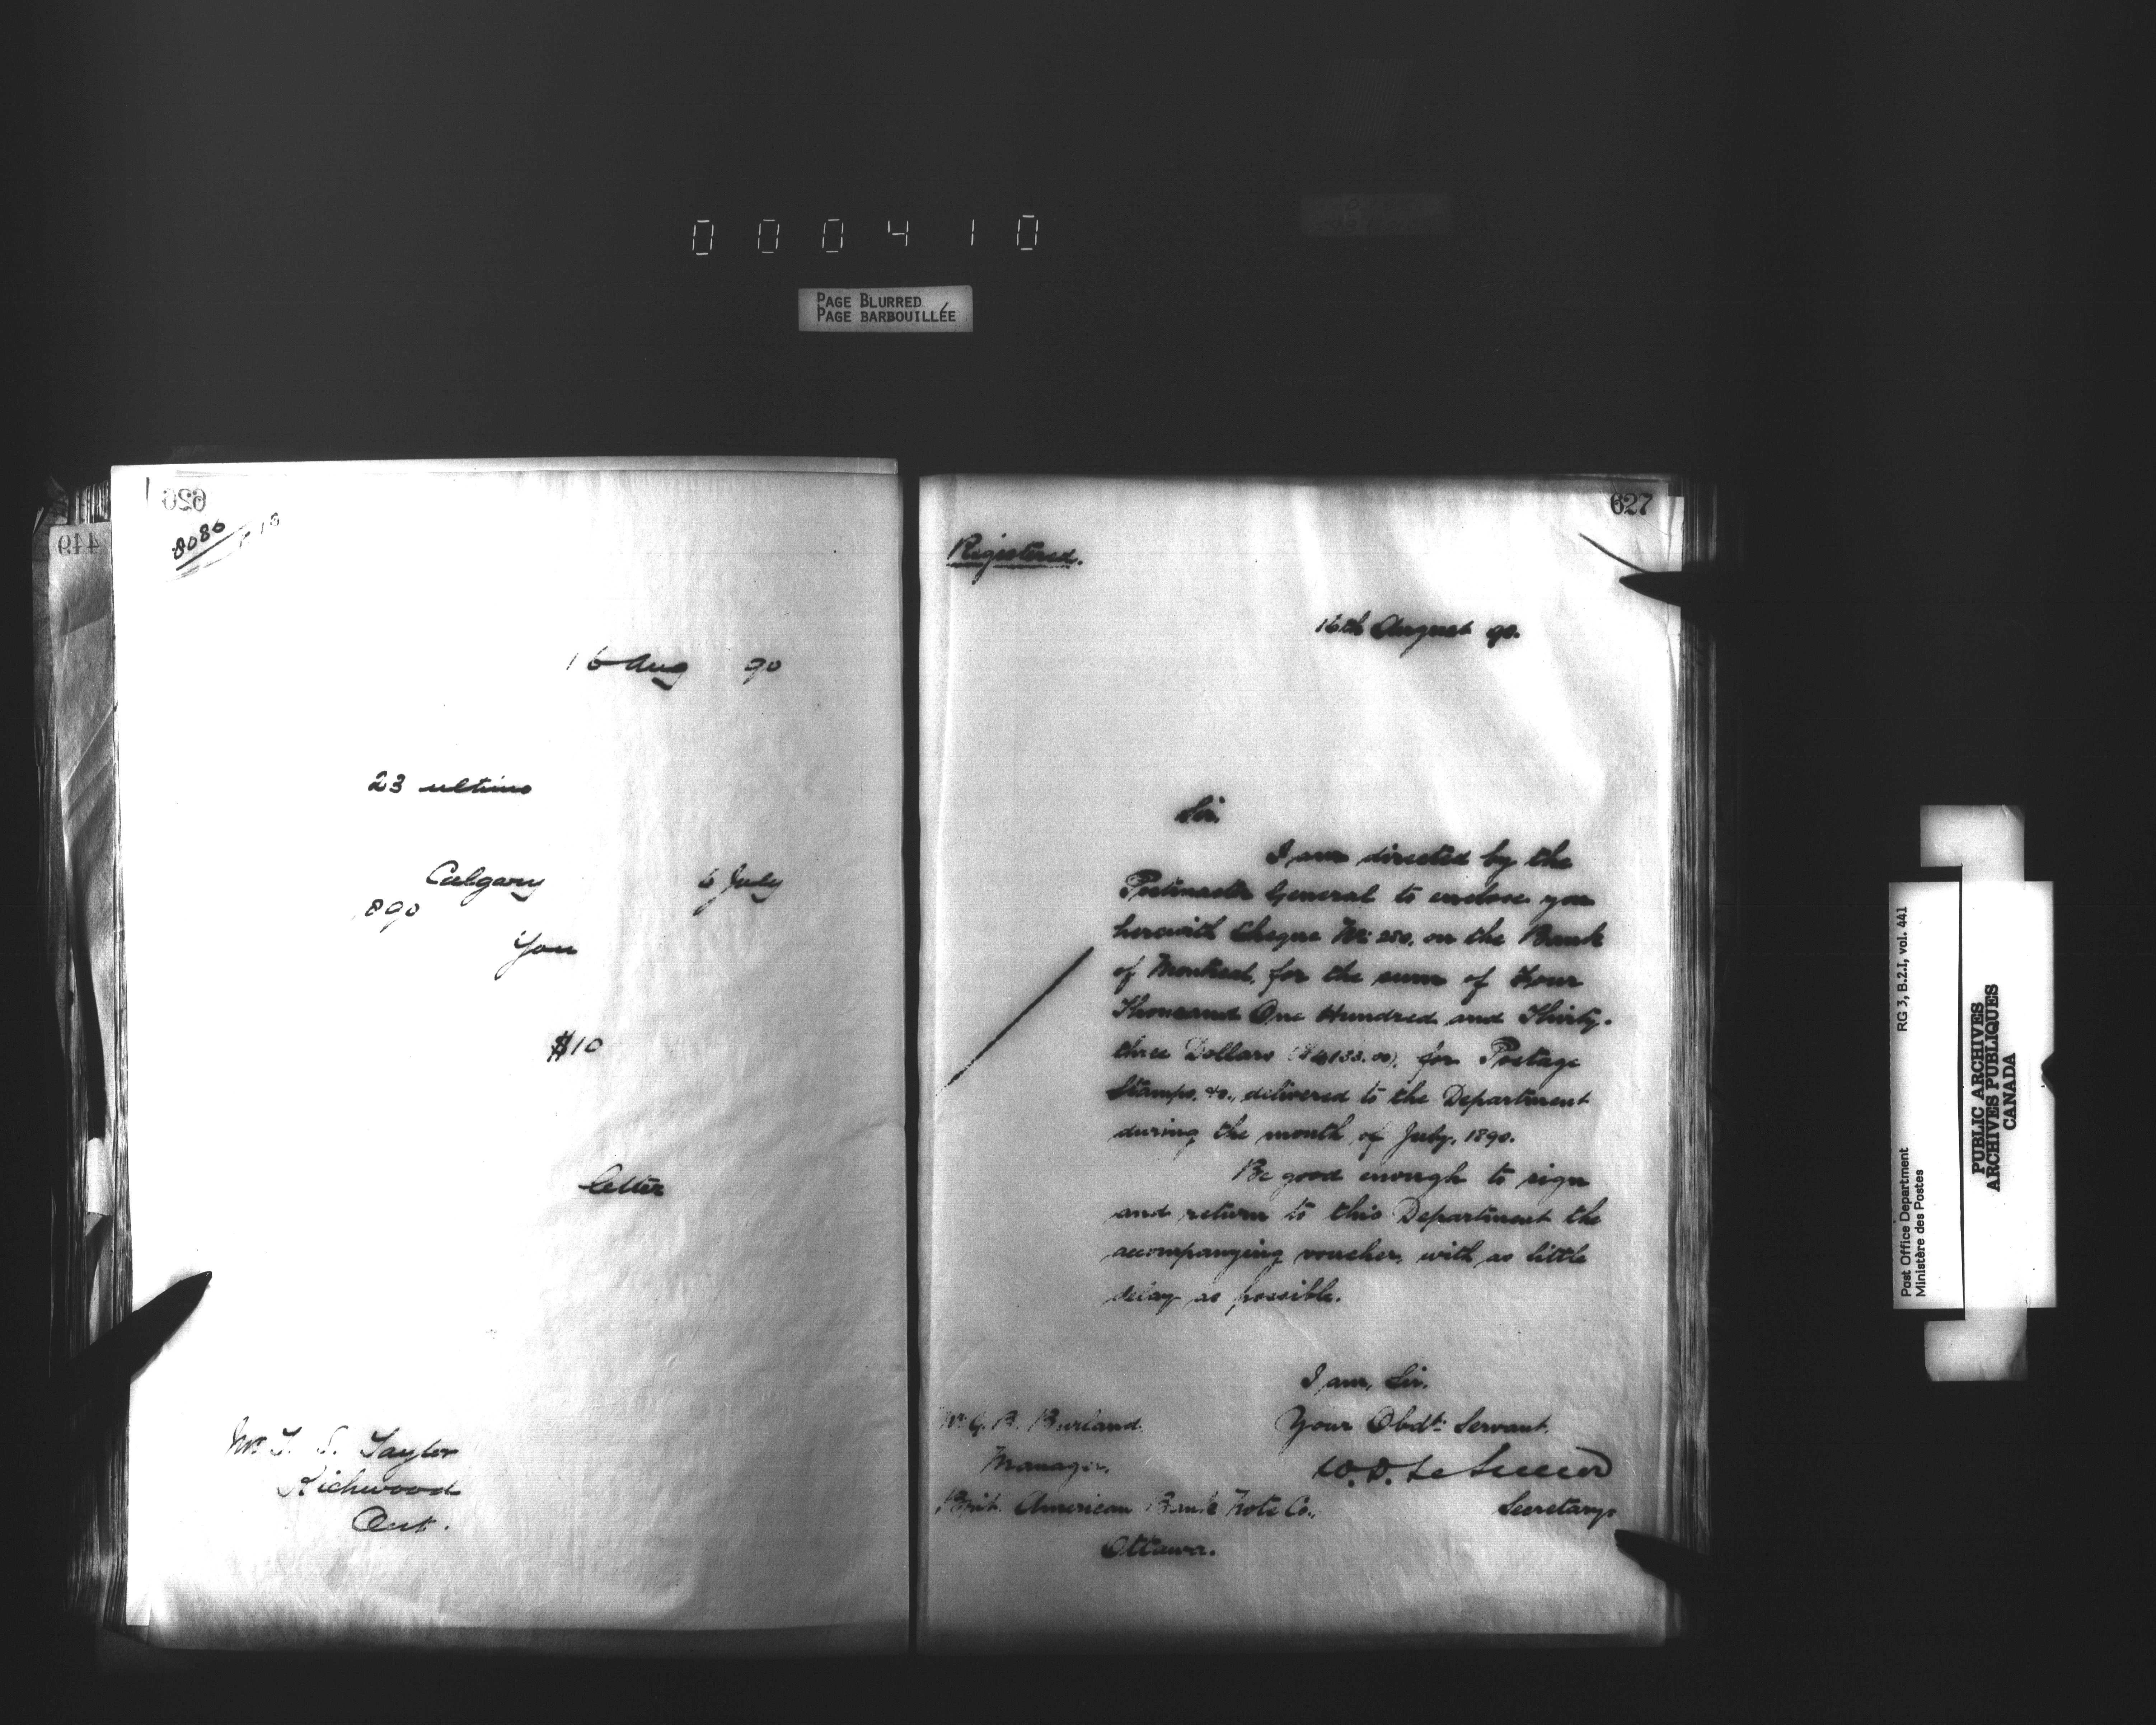 000410
PAGE BLURRED
PAGE BARBOUILLÉE
626
449
8086
16 Aug 90
23 ultimo
Calgary 6 July
890
You
$10
letter
Mr T. S. Taylor
Richwood
Ont.
627
Registered.
16th August 90.
Sir,
I am directed by the
Postmaster General to enclose you
herewith Cheque No: 250, on the Bank
of Montreal, for the sum of Four
Thousand One Hundred and Thirty-
three Dollars ($4133.00), for Postage
Stamps, &c., delivered to the Department
during the month of July, 1890.
Be good enough to sign
and return to this Department the
accompanying voucher, with as little
delay as possible.
I am, Sir,
Your Obdt: Servant.
W.D. LeSueur
Secretary.
Mr G. B. Burland
Manager,
Brit. American Bank Note Co.,
Ottawa.
Post Office Department
Ministère des Postes
RG 3, B.2.I, vol. 441
PUBLIC ARCHIVES
ARCHIVES PUBLIQUES
CANADA